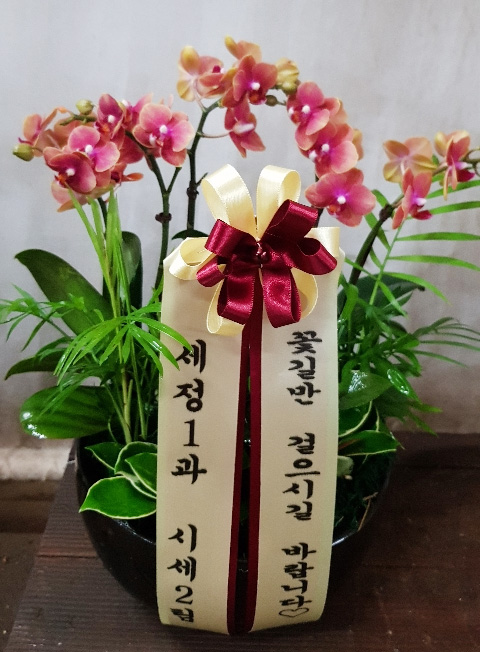 꽃길반 걸으시길 바랍니다♡
세정1과 시세2팀